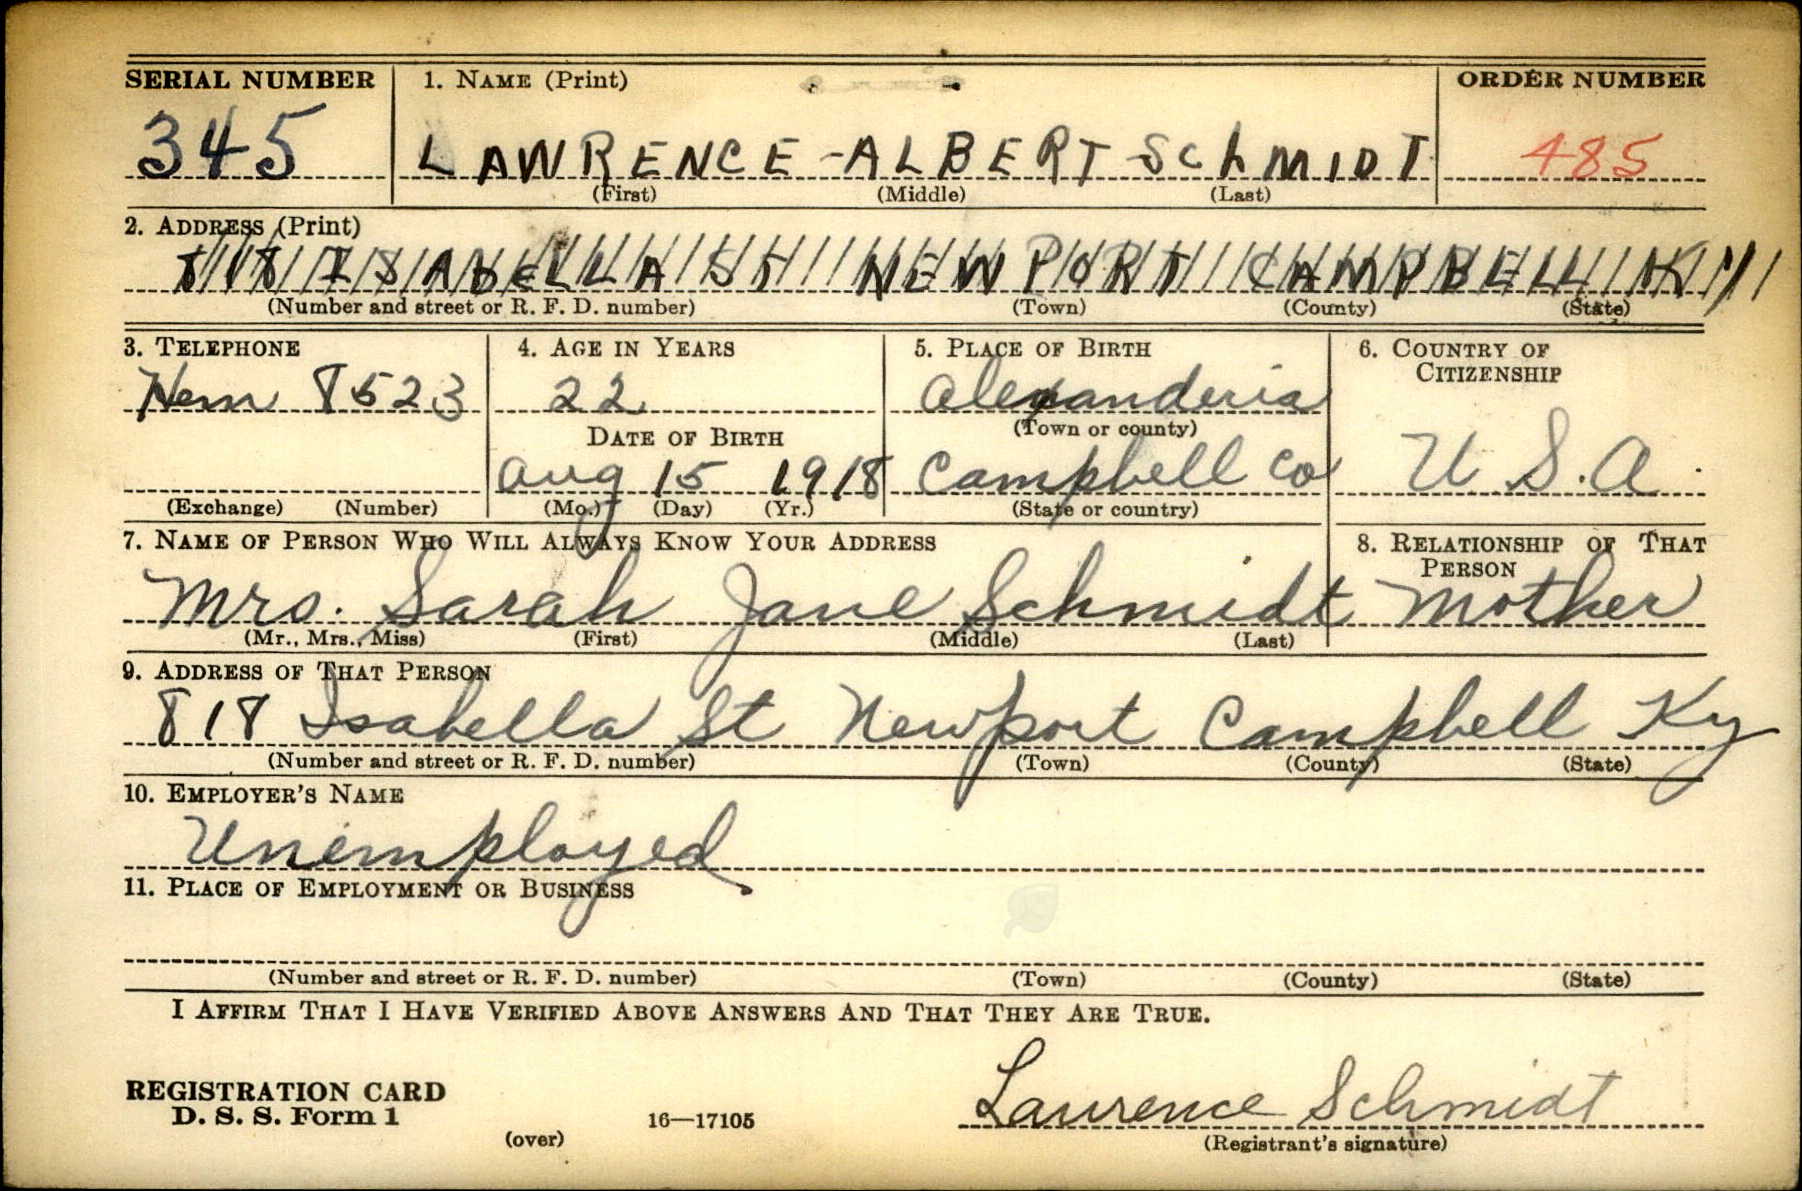 SERIAL NUMBER
345
1. NAME (Print)
LAWRENCE - ALBERT - SCHMIDT
(First) (Middle) (Last)
ORDER NUMBER
485
2. ADDRESS (Print)
818 ISABELLA ST NEWPORT CAMPBELL KY
(Number and street or R. F. D. number) (Town) (County) (State)
3. TELEPHONE
Hem 8523
(Exchange) (Number)
4. AGE IN YEARS
22
DATE OF BIRTH
Aug 15 1918
(Mo.) (Day) (Yr.)
5. PLACE OF BIRTH
Alexanderia
(Town or county)
Campbell Co
(State or country)
6. COUNTRY OF
CITIZENSHIP
U S. A.
7. NAME OF PERSON WHO WILL ALWAYS KNOW YOUR ADDRESS
Mrs. Sarah Jane Schmidt
(Mr., Mrs., Miss) (First) (Middle) (Last)
8. RELATIONSHIP OF THAT
PERSON
Mother
9. ADDRESS OF THAT PERSON
818 Isabella St Newport Campbell Ky
(Number and street or R. F. D. number) (Town) (County) (State)
10. EMPLOYER'S NAME
Unemployed
11. PLACE OF EMPLOYMENT OR BUSINESS
(Number and street or R. F. D. number) (Town) (County) (State)
I AFFIRM THAT I HAVE VERIFIED ABOVE ANSWERS AND THAT THEY ARE TRUE.
REGISTRATION CARD
D. S. S. Form 1
(over)
16—17105
Lawrence Schmidt
(Registrant's signature)